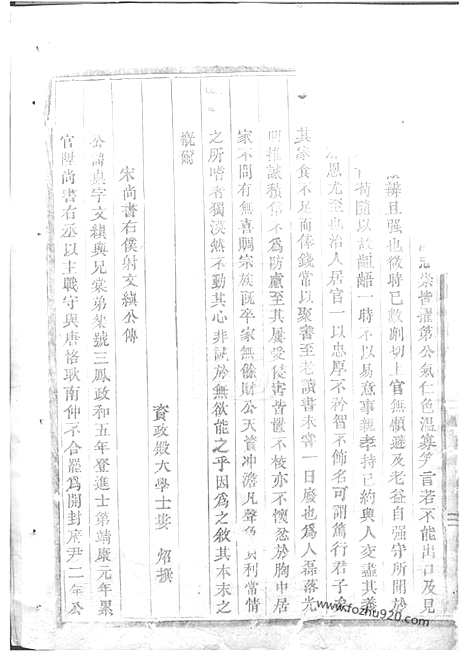 崇皆擢第公氣仁色溫寡笑言若不能出口及見
辨且强也從時已救劘切上官無頗避及老益自强守所聞於
苟隨以故齟齬一時不以易意事親孝持己約與人交盡其義
恩尤至也治人居官一以忠厚不矜智不飾名可謂篤行君子
其家食不足而俸錢常以聚書至老讀書未嘗一日廢也為人磊落光
明推誠積信不為防慮至其屢受侵害皆置不校亦不懷忿於胸中居
家不問有無喜賙宗族既卒家無餘財公天資冲澹凡聲色貨利常情
之所嗜者獨漠然不動其心非誠於無欲能之乎因為之敘其本末之
概爾
宋尚書右僕射文縝公傳
資政殿大學士婁 炤撰
公諱㮚字文縝與兄棠弟榘號三鳳政和五年登進士第靖康元年累
官陞尚書右丞以主戰守與唐恪耿南仲不合罷為開封府尹二年公
www.fozhu920.com